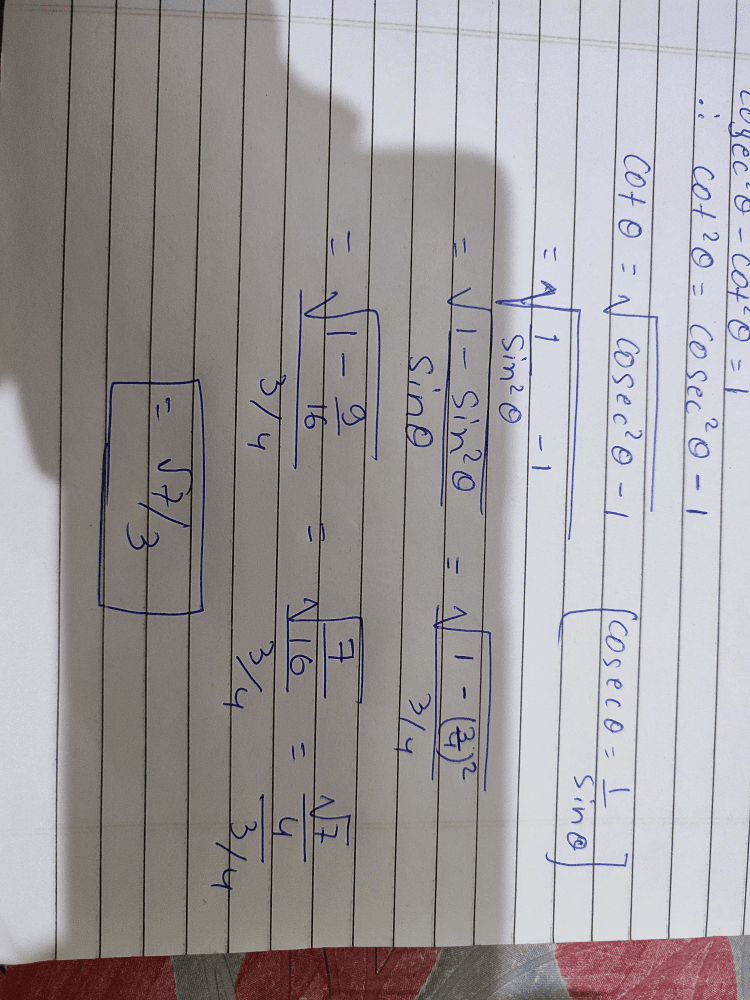 cosec²θ - cot²θ = 1
∴ cot²θ = cosec²θ - 1
cot θ = √(cosec²θ - 1) [cosec θ = 1/sin θ]
= √(1/sin²θ - 1)
= √(1 - sin²θ)/sin θ = √(1 - (3/4)²)/(3/4)
= √(1 - 9/16)/(3/4) = √(7/16)/(3/4) = (√7/4)/(3/4)
= √7/3